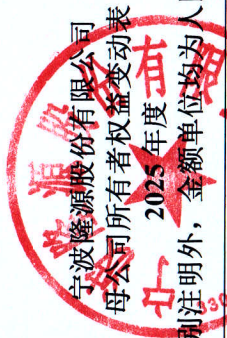 宁波隆源股份有限公司
母公司所有者权益变动表
2025 年度
别注明外，金额单位均为人